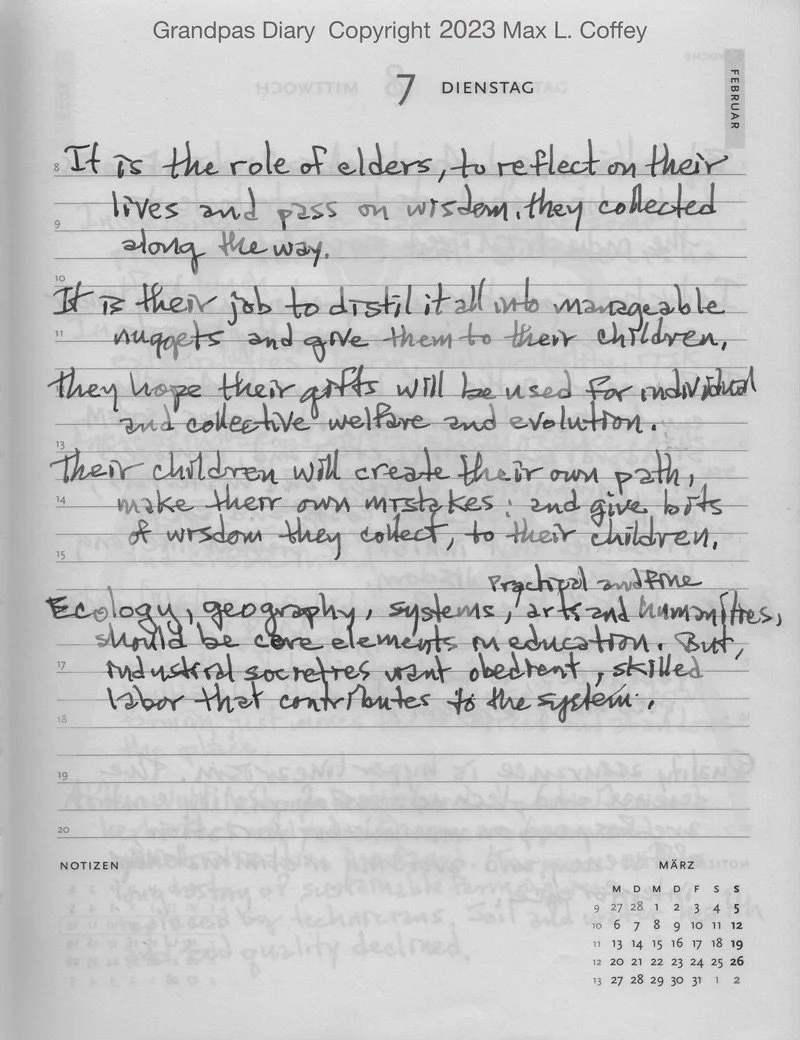 Grandpas Diary Copyright 2023 Max L. Coffey
7 DIENSTAG
FEBRUAR
8 It is the role of elders, to reflect on their
lives and pass on wisdom, they collected
9
along the way.
10
It is their job to distil it all into manageable
11 nuggets and give them to their children,
they hope their gifts will be used for individual
and collective welfare and evolution.
13
Their children will create their own path,
14 make their own mistakes; and give bits
of wisdom they collect, to their children.
15
Practical and Fine
Ecology, geography, systems, arts and humanities,
should be core elements in education. But,
17 industrial societies want obedient, skilled
labor that contributes to the system.
18
19
20
NOTIZEN
MÄRZ
M D M D F S S
9 27 28 1 2 3 4 5
10 6 7 8 9 10 11 12
11 13 14 15 16 17 18 19
12 20 21 22 23 24 25 26
13 27 28 29 30 31 1 2